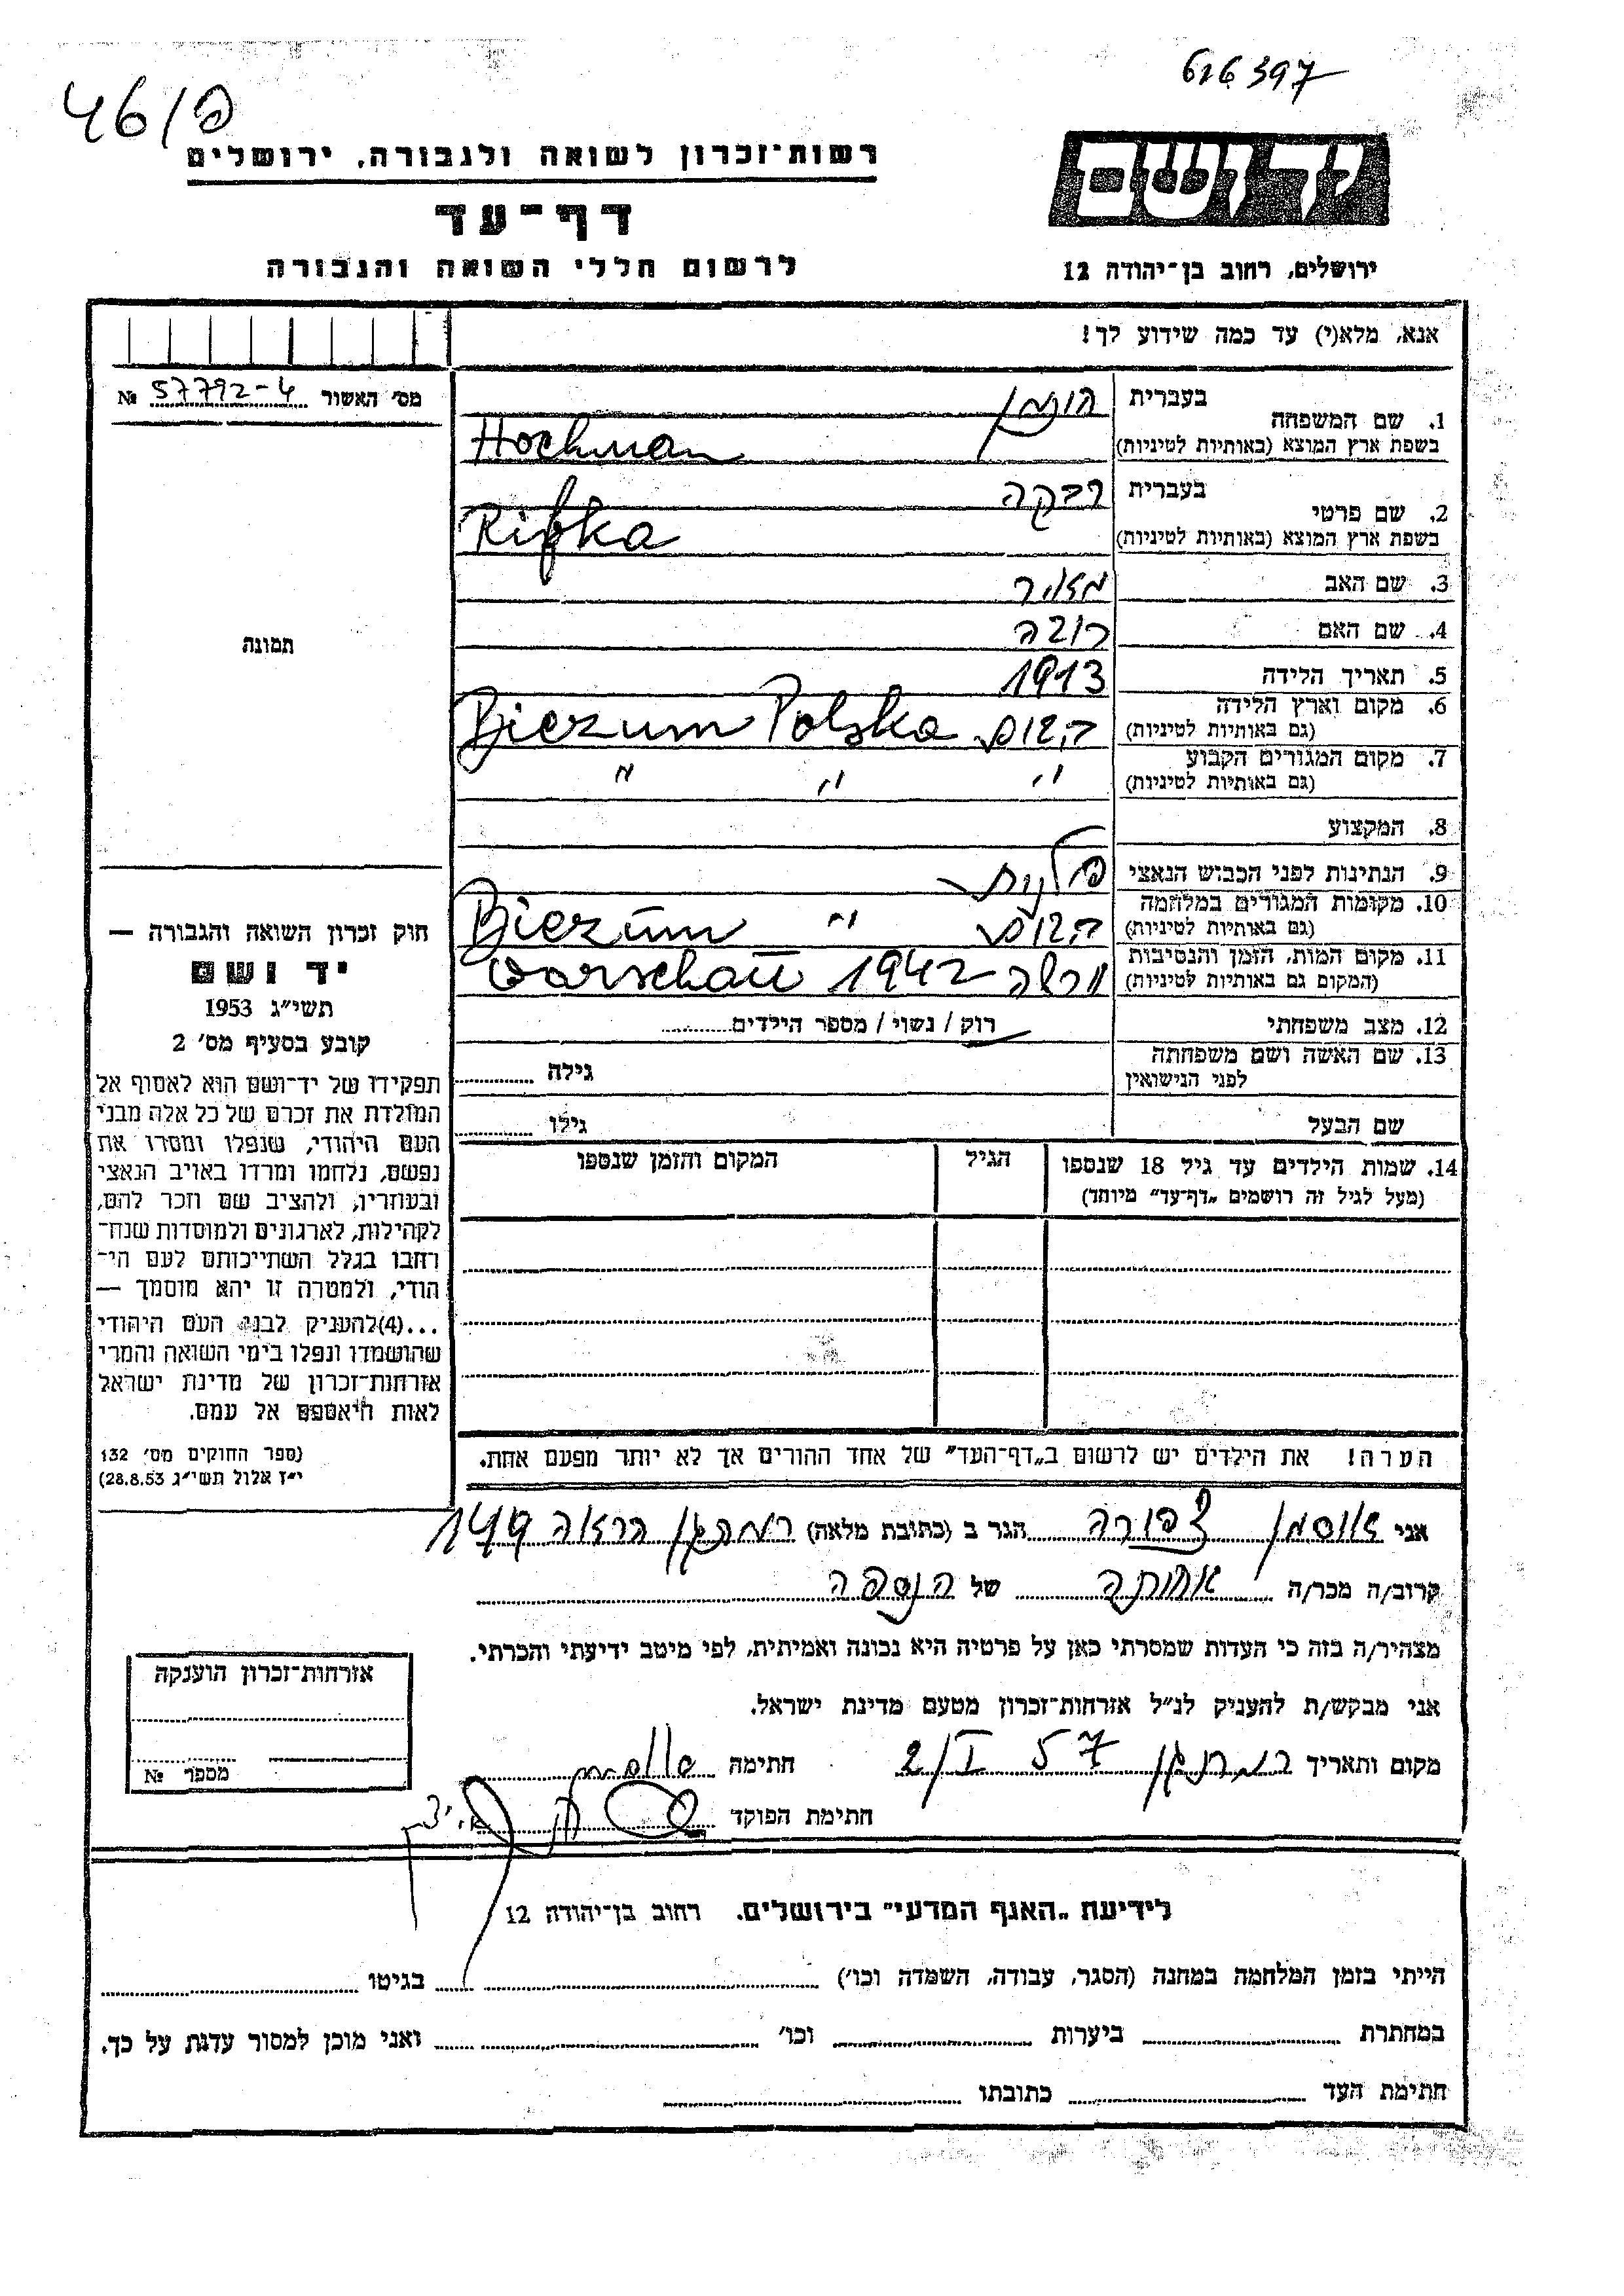 616397
46/פ
רשות־זכרון לשואה ולגבורה, ירושלים
דף־עד
לרשום חללי השואה והגבורה
יד ושם
ירושלים, רחוב בן־יהודה 12
אנא, מלא(י) עד כמה שידוע לך!
מס׳ האשור № 57792-4
1. שם המשפחה בעברית הוכמן
בשפת ארץ המוצא (באותיות לטיניות) Hochman
2. שם פרטי בעברית רבקה
בשפת ארץ המוצא (באותיות לטיניות) Rifka
3. שם האב מאיר
4. שם האם
5. תאריך הלידה 1913
6. מקום וארץ הלידה Biezum Polska
(גם באותיות לטיניות)
7. מקום המגורים הקבוע " " "
(גם באותיות לטיניות)
8. המקצוע
9. הנתינות לפני הכבוש הנאצי פולנית
10. מקומות המגורים במלחמה " Biezum
(גם באותיות לטיניות)
11. מקום המות, הזמן והנסיבות ורשה 1942 Warschau
(המקום גם באותיות לטיניות)
12. מצב משפחתי רוק / נשוי / מספר הילדים
13. שם האשה ושם משפחתה גילה
לפני הנישואין
שם הבעל גילו
14. שמות הילדים עד גיל 18 שנספו הגיל המקום והזמן שנספו
(מעל לגיל זה רושמים „דף־עד" מיוחד)
הערה! את הילדים יש לרשום ב„דף־העד" של אחד ההורים אך לא יותר מפעם אחת.
תמונה
חוק זכרון השואה והגבורה —
יד ושם
תשי״ג 1953
קובע בסעיף מס׳ 2
תפקידו של יד־ושם הוא לאסוף אל
המולדת את זכרם של כל אלה מבני
העם היהודי, שנפלו ומסרו את
נפשם, נלחמו ומרדו באויב הנאצי
ובעוזריו, ולהציב שם וזכר להם,
לקהילות, לארגונים ולמוסדות שנח־
רחבו בגלל השתייכותם לעם הי־
הודי, ולמטרה זו יהא מוסמך —
...(4)להעניק לבני העם היהודי
שהושמדו ונפלו בימי השואה והמרי
אזרחות־זכרון של מדינת ישראל
לאות היאספם אל עמם.
(ספר החוקים מס׳ 132
י״ז אלול תשי״ג 28.8.53)
אני זוסמן צפורה הגר ב (כתובת מלאה) רמת גן הרואה 149
קרוב/ה מכר/ה אחותה של הנספה
מצהיר/ה בזה כי העדות שמסרתי כאן על פרטיה היא נכונה ואמיתית, לפי מיטב ידיעתי והכרתי.
אני מבקש/ת להעניק לנ״ל אזרחות־זכרון מטעם מדינת ישראל.
מקום ותאריך רמת גן 2/I 57 חתימה
חתימת הפוקד
אזרחות־זכרון הוענקה
מספר №
לידיעת „האגף המדעי" בירושלים. רחוב בן־יהודה 12
הייתי בזמן המלחמה במחנה (הסגר, עבודה, השמדה וכו׳) בגיטו
במחתרת ביערות וכו׳ ואני מוכן למסור עדות על כך.
חתימת העד כתובתו